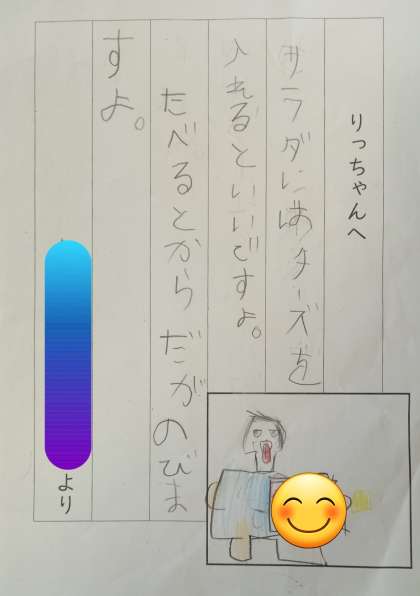 りっちゃんへ
サラダにはチーズを
入れるといいですよ。
たべるとからだがのびま
すよ。
より